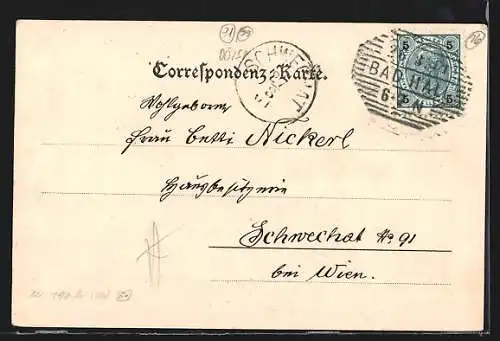 Correspondenz-Karte.
SCHWECHAT
BAD HALL
6-
N
5 5
5 5
Wohlgeborne
Frau Betti Nickerl
Hausbesitzerin
Schwechat No 91
bei Wien.